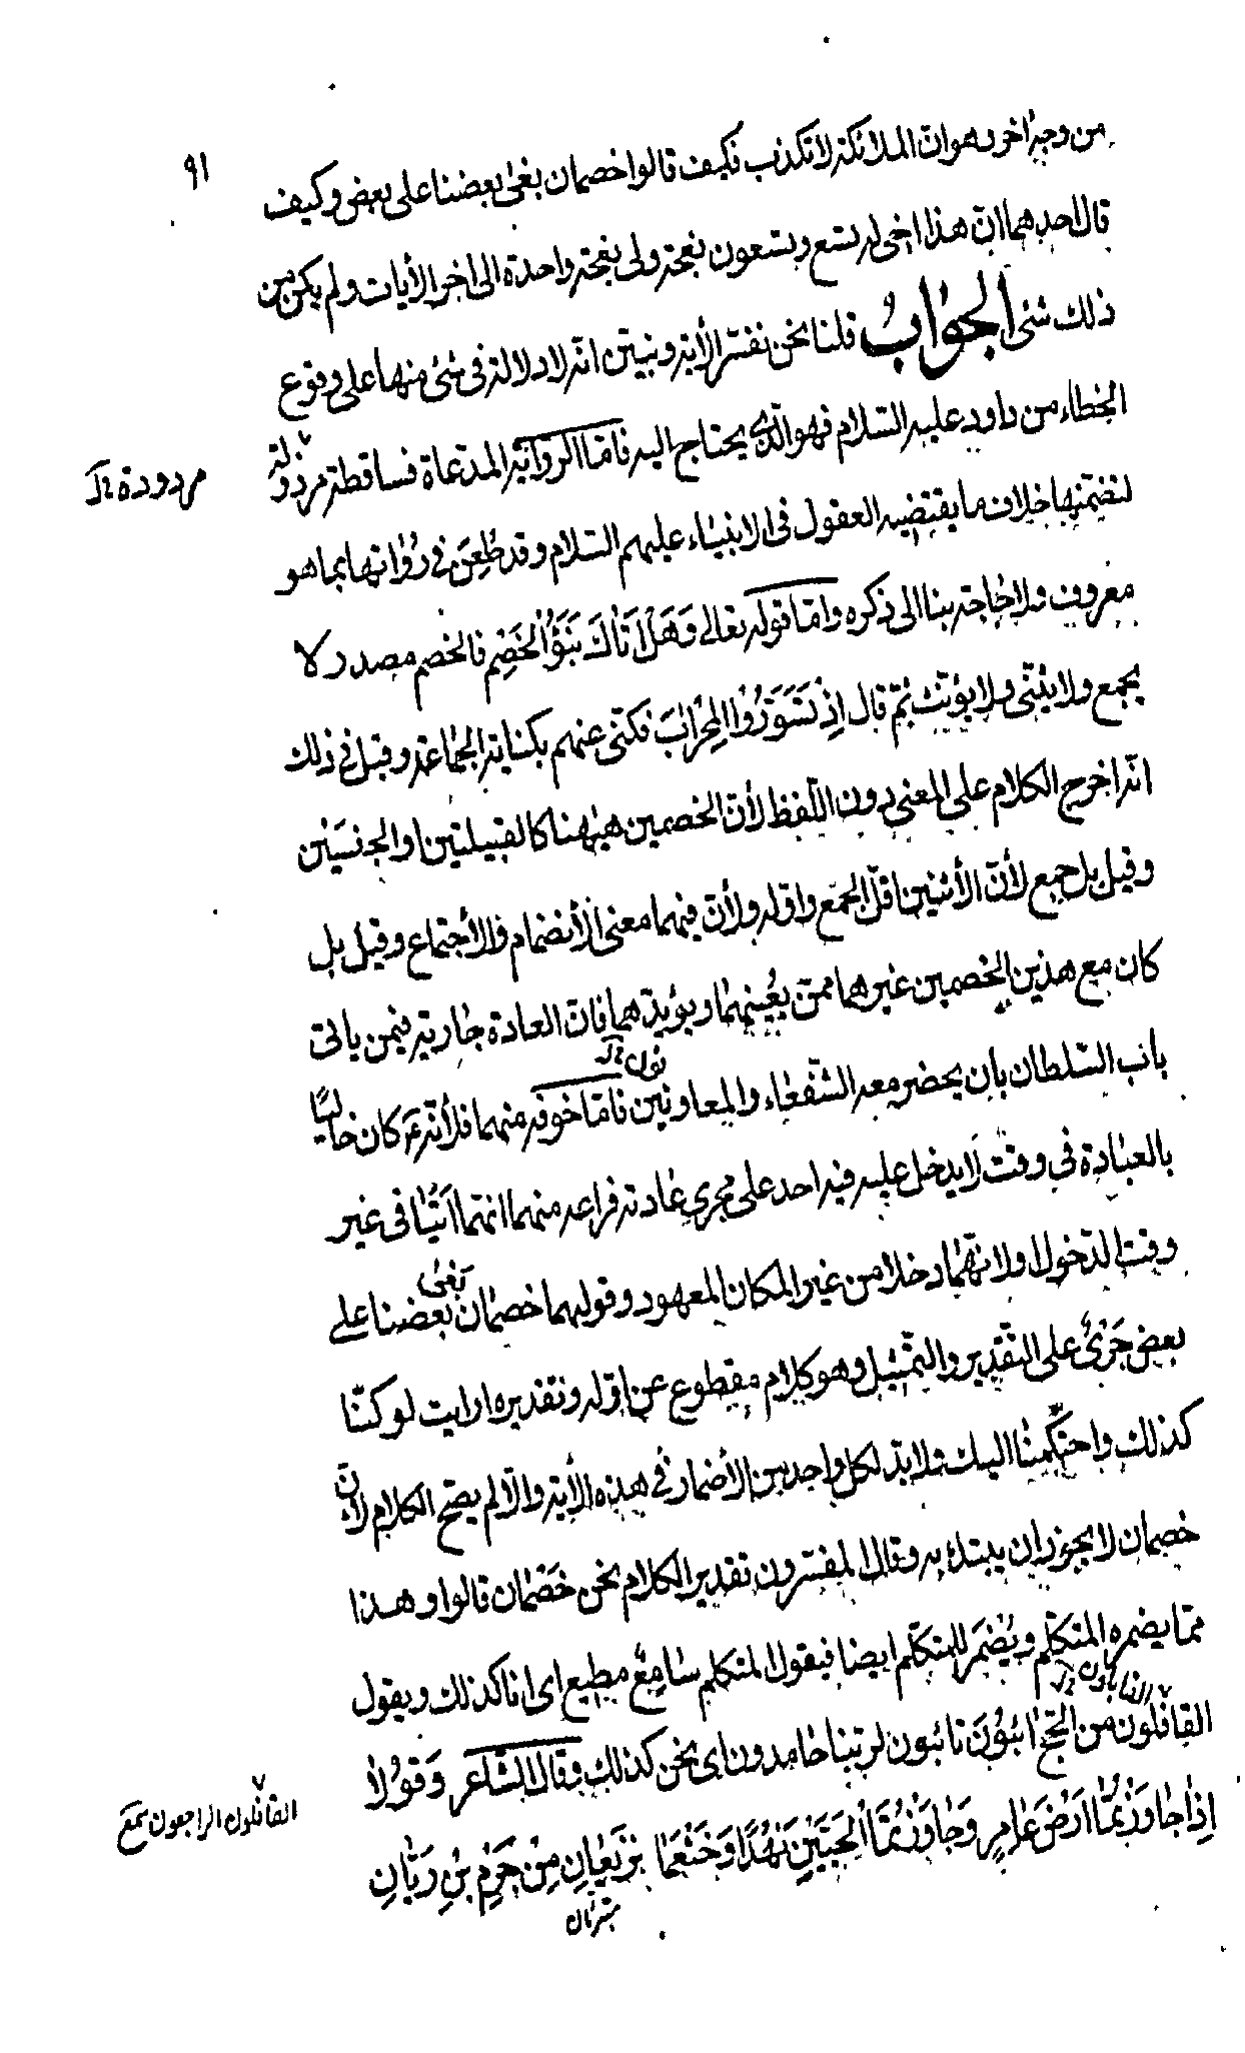 ٩١
من وجه اخر وهو ان الملائكة لا تكذب فكيف قالوا خصمان بغى بعضنا على بعض وكيف
قال احدهما ان هذا اخى له تسع وتسعون نعجة ولى نعجة واحدة الى اخر الأيات ولم يكن من
ذلك شئ الجواب قلنا نحن نفسّر الأية ونبيّن انّه لا دلالة فى شئ منها على وقوع
الخطاء من داود عليه السّلام فهو الّذى يحتاج اليه فامّا الرّواية المدّعاة فساقطة مردولة
مردودة خ ل
لتضمّنها خلاف ما يقتضيه العقول فى الانبياء عليهم السّلام وقد طُعِنَ فى رُواتها بما هو
معروف فلا حاجة بنا الى ذكره وامّا قوله تعالى وَهَلْ اَتاكَ نَبَؤُا الْخَصْمِ فالخصم مصدر لا
يجمع ولا يثنّى ولا يؤنّث ثمّ قال اِذْ تَسَوَّرُوا الْمِحْرابَ فكنّى عنهم بكناية الجماعة وقيل فى ذلك
انّه اخرج الكلام على المعنى دون اللّفظ لأنّ الخصمين هيهنا كالقبيلتين او الجنسَيْن
وقيل بل جمع لأنّ الأثنين اقلّ الجمع واوّله ولأنّ فيهما معنى الأنضمام والأجتماع وقيل بل
كان مع هذين الخصمين غيرهما ممّن يُعينهما ويؤيّدهما فانّ العادة جارية فيمن ياتى
باب السّلطان بان يحضر معه الشّفعاء والمعاونين فامّا خوفه منهما فلأنّه ع كان خاليًا
نون خ ل
بالعبادة فى وقت لا يدخل عليه فيه احد على مجرى عادته فراعه منهما انّهما اَتَيا فى غير
وقت الدّخول او لانّهما دخلا من غير المكان المعهود وقولهما خصمان بغى بعضنا على
بعض جَرْىٌ على التّقدير والتّمثيل وهو كلام مقطوع عن اوّله وتقديره ارايت لو كنّا
كذلك واحتكمنا اليك فلا بدّ لكلّ واحد من الأضمار فى هذه الأية والّا لم يصحّ الكلام لانّ
خصمان لا يجوز ان يبتدئ به وقال المفسّرون تقدير الكلام نحن خَصْمان قالوا وهذا
ممّا يضمره المتكلّم ويُضمَر للمتكلّم ايضا فيقول المتكلم سامِعٌ مطيع اى انا كذلك ويقول
القافلون من الحجّ ائبُونَ تائبون لربّنا حامدون اى نحن كذلك وقال الشّاعر وَقُولا
القافلون الراجعون
اِذا جاوَزْتُما اَرْضَ عامِرٍ وَجاوَزْتُمَا الْحَيَّيْنِ نَهْدًا وَخَثْعَما نَزيعانِ مِنْ جَرْمِ بْنِ رَبّانِ